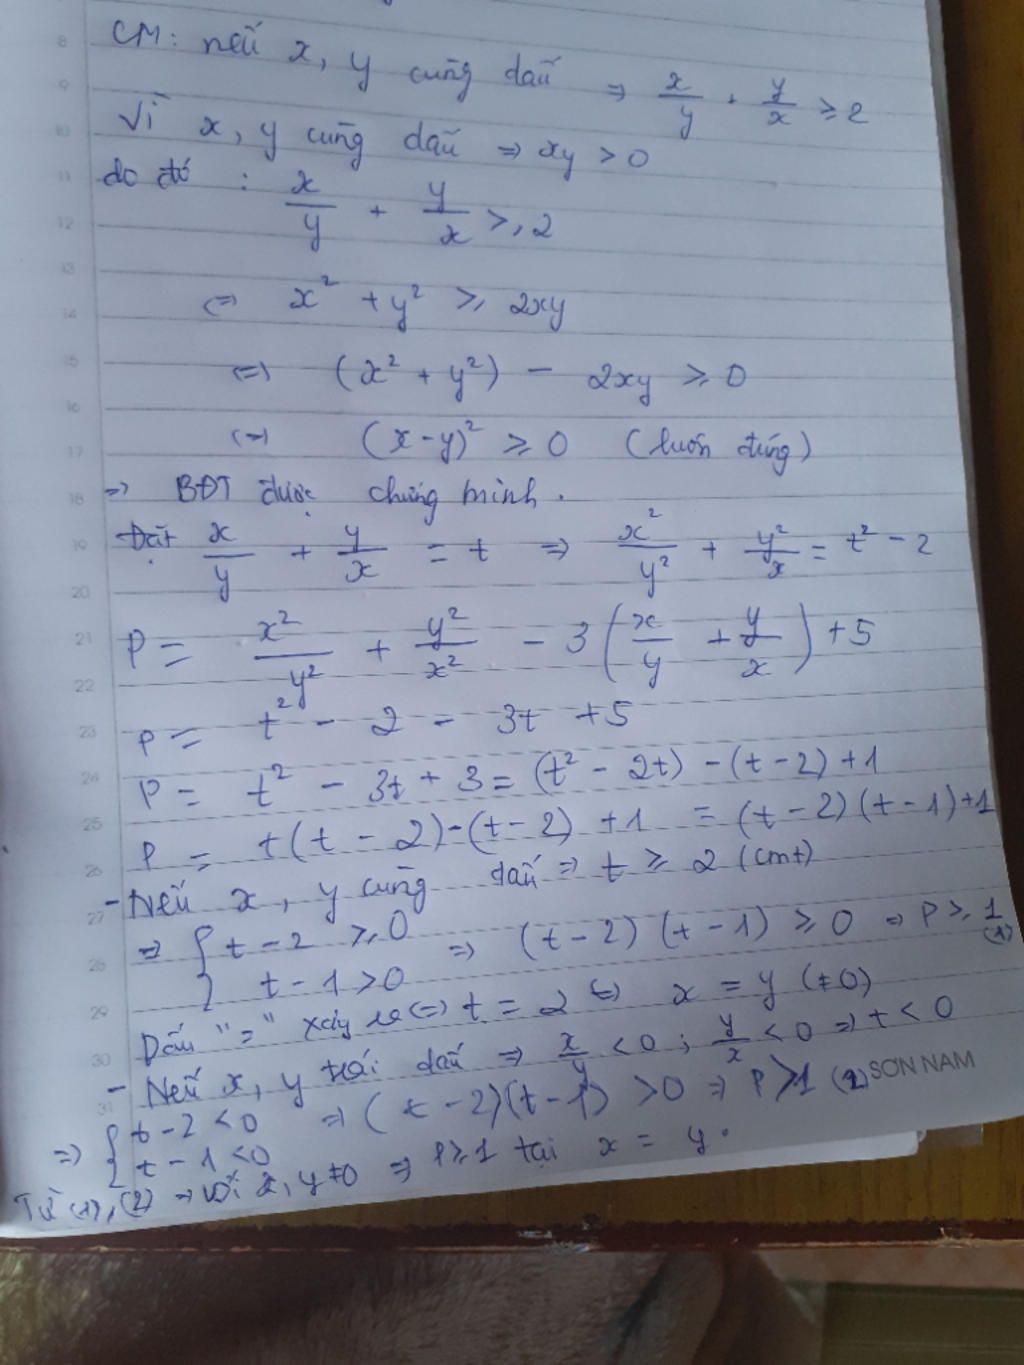 CM: nếu x, y cùng dấu => x/y + y/x ≥ 2
Vì x, y cùng dấu => xy > 0
do đó : x/y + y/x ≥ 2
<=> x² + y² ≥ 2xy
<=> (x² + y²) - 2xy ≥ 0
<=> (x-y)² ≥ 0 (luôn đúng)
=> BĐT được chứng minh.
Đặt x/y + y/x = t => x²/y² + y²/x = t² - 2
P = x²/y² + y²/x² - 3(x/y + y/x) + 5
P = t² - 2 - 3t + 5
P = t² - 3t + 3 = (t² - 2t) - (t - 2) + 1
P = t(t - 2) - (t - 2) + 1 = (t - 2)(t - 1) + 1
- Nếu x, y cùng dấu => t ≥ 2 (cmt)
=> { t - 2 ≥ 0
t - 1 > 0 => (t - 2)(t - 1) ≥ 0 => P ≥ 1 (1)
Dấu "=" xảy ra <=> t = 2 <=> x = y (≠0)
- Nếu x, y trái dấu => x/y < 0 ; y/x < 0 => t < 0
=> { t - 2 < 0
t - 1 < 0 => (t - 2)(t - 1) > 0 => P > 1 (2)
SƠN NAM
Từ (1), (2) => với x, y ≠ 0 => P ≥ 1 tại x = y.
8
9
10
11
12
13
14
15
16
17
18
19
20
21
22
23
24
25
26
27
28
29
30
31